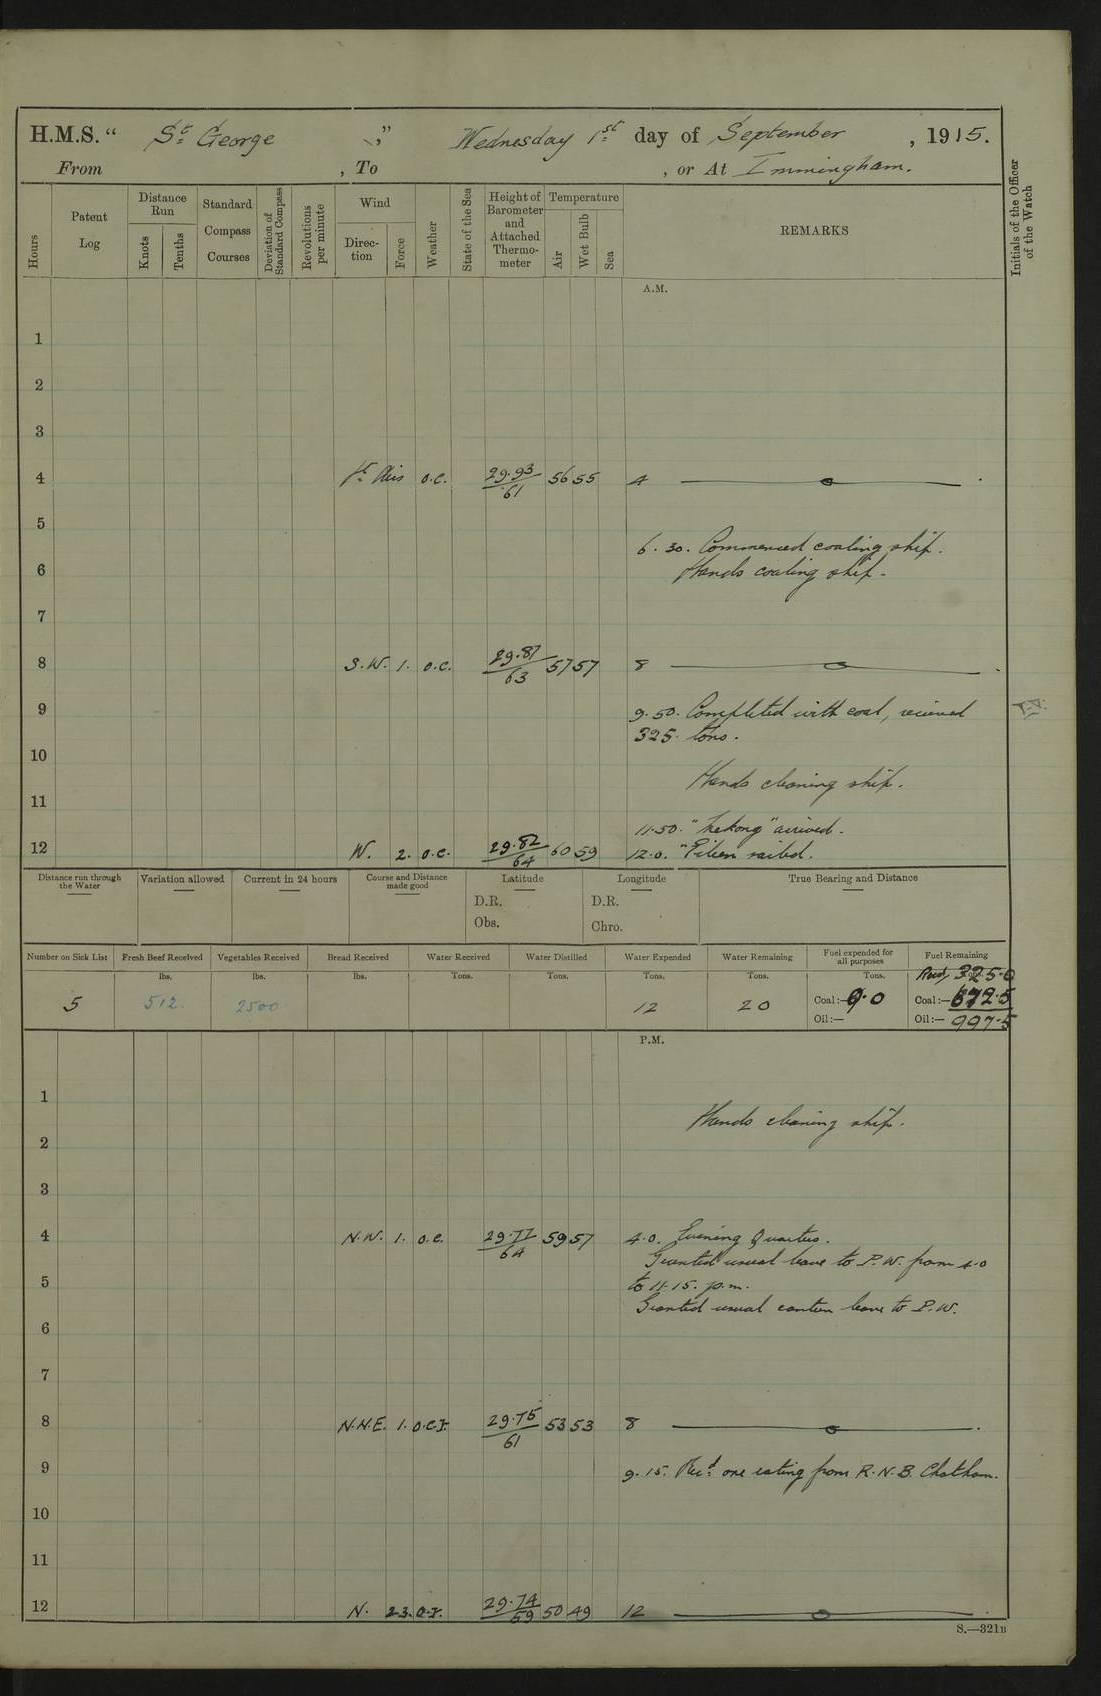 H.M.S. “ St George ,” Wednesday 1st day of September , 1915.
From , To , or At Immingham.
Hours
Patent Log
Distance Run
Knots
Tenths
Standard Compass Courses
Deviation of Standard Compass
Revolutions per minute
Wind
Direction
Force
Weather
State of the Sea
Height of Barometer and Attached Thermometer
Temperature
Air
Wet Bulb
Sea
REMARKS
Initials of the Officer of the Watch
A.M.
1
2
3
4 Lt Airs o.c. 29.93/61 56 55 4
5
6.30. Commenced coaling ship.
6 Hands coaling ship.
7
8 S.W. 1. o.c. 29.87/63 57 57 8
9 9.50. Completed with coal, received
325 tons.
10
Hands cleaning ship.
11
11.50. "Mekong" arrived.
12 W. 2. o.c. 29.82/64 60 59 12.0. " sailed.
Distance run through the Water
Variation allowed
Current in 24 hours
Course and Distance made good
Latitude
D.R.
Obs.
Longitude
D.R.
Chro.
True Bearing and Distance
Number on Sick List
Fresh Beef Received
Vegetables Received
Bread Received
Water Received
Water Distilled
Water Expended
Water Remaining
Fuel expended for all purposes
Fuel Remaining
lbs. lbs. lbs. Tons. Tons. Tons. Tons. Tons. Recd, 325.0
5 512 2500 12 20 Coal:— 9.0 Coal:— 672.5
Oil:— Oil:— 997.5
P.M.
1
Hands cleaning ship.
2
3
4 N.W. 1. o.c. 29.77/64 59 57 4.0. Evening Quarters.
Granted usual leave to P.W. from 4.0
5 to 11.15. p.m.
Granted usual canteen leave to S.W.
6
7
8 N.N.E. 1. o.c.r. 29.75/61 53 53 8
9 9.15. Recd one rating from R.N.B. Chatham.
10
11
12 N. 2.3. o.r. 29.74/59 50 49 12
S.—321B